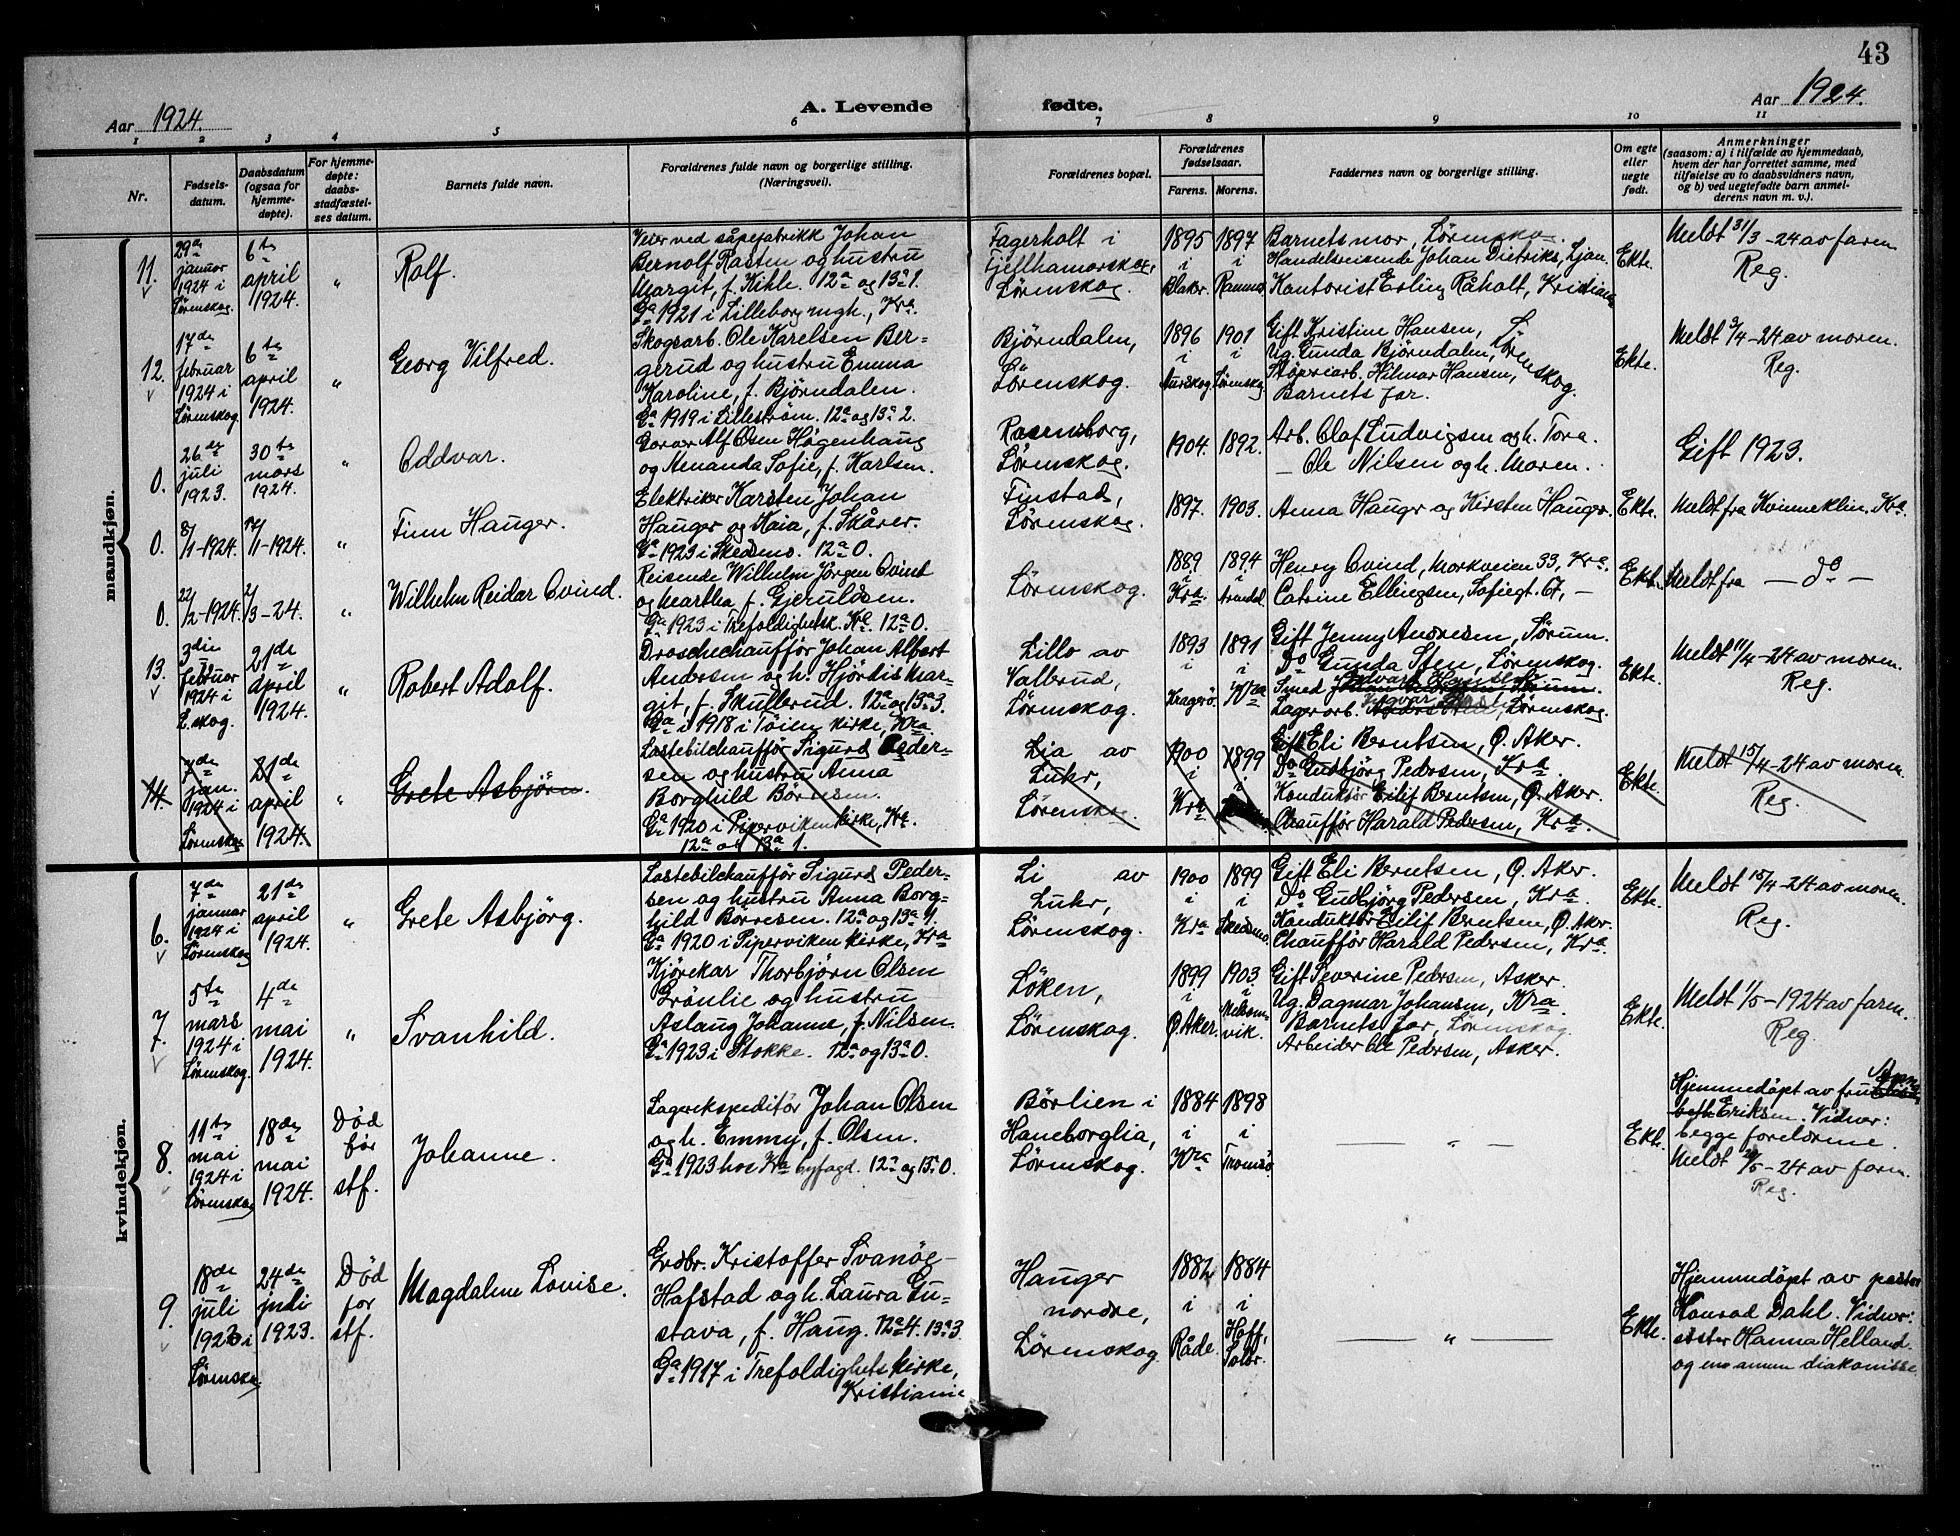 43
Aar 1924.
A. Levende fødte.
Aar 1924.
1 2 3 4 5 6 7 8 9 10 11
Nr.
Fødsels-
datum.
Daabsdatum
(ogsaa for
hjemme-
døpte).
For hjemme-
døpte:
daabs-
stadfæstel-
ses datum.
Barnets fulde navn.
Forældrenes fulde navn og borgerlige stilling.
(Næringsvei).
Forældrenes bopæl.
Forældrenes
fødselsaar.
Farens. Morens.
Faddernes navn og borgerlige stilling.
Om egte
eller
uegte
født.
Anmerkninger
(saasom: a) i tilfælde av hjemmedaab,
hvem der har forrettet samme, med
tilføielse av to daabsvidners navn,
og b) ved uegtefødte barn anmel-
derens navn m. v.).
mandkjøn.
11.
29de
januar
1924 i
Lørenskog.
6te
april
1924.
"
Rolf.
Veier ved såpefabrikk Johan
Bernolf Rasten og hustru
Margit, f. Kihle. 12a og 13a 1.
Ga 1921 i Lilleborg mgh., Kra.
Fagerholt i
Fjellhamarskog,
Lørenskog.
1895
i
Blaker.
1897
i
Ramnes.
Barnets mor, Lørenskog.
Handelsreisende Johan Dietriks, Ljan.
Kontorist Erling Råholt, Kristiania
Ekte.
Meldt 31/3 -24 av faren
Reg.
12.
17de
februar
1924 i
Lørenskog.
6te
april
1924.
"
Georg Vilfred.
Skogsarb. Ole Karelsen Ber-
gerud og hustru Emma
Karoline, f. Bjørndalen.
Ga 1919 i Lillestrøm. 12a og 13a 2.
Bjørndalen,
Lørenskog.
1896
i
Aurskog
1901
i
Lørenskog.
Gift Kristine Hansen,
Ug. Gunda Bjørndalen,
Støperiarb. Hilmar Hansen,
Lørenskog.
Barnets far.
Ekte.
Meldt 3/4 -24 av moren.
Reg.
0.
26de
juli
1923.
30te
mars
1924.
"
Oddvar.
Garver Alf Olsen Høgenhaug
og Menanda Sofie, f. Karlsen.
Rosenborg,
Lørenskog.
1904. 1892.
Arb. Olaf Ludvigsen og h. Tora.
— Ole Nilsen og h. Moren.
Gift 1923.
0.
8/1-1924.
14/1-1924.
"
Finn Hauger.
Elektriker Karsten Johan
Hauger og Kaia, f. Skårer.
Ga 1923 i Skedsmo. 12a 0.
Finstad,
Lørenskog.
1897. 1903.
Anna Hauger og Kirsten Hauger.
Ekte.
Meldt fra Kvinneklin. Kra.
0.
22/2-1924.
2/3-24.
"
Wilhelm Reidar Qvind.
Reisende Wilhelm Jørgen Qvind
og Martha, f. Gjeruldsen.
Ga 1923 i Trefoldighetsk. Kra. 12a 0.
Lørenskog.
1889
i
Kra.
1894
i
Arendal
Henry Qvind, Markveien 33, Kra.
Catrine Ellingsen, Sofiegt. 67, —
Ekte.
Meldt fra — do —
13.
3die
februar
1924 i
L.skog.
21de
april
1924.
"
Robert Adolf.
Droschechauffør Johan Albert
Andersen og h. Hjørdis Mar-
git, f. Skullerud. 12a og 13a 3.
Ga i 1918 i Tøien kirke, Kra.
Lillo av
Valbrud,
Lørenskog.
1893
i
Kragerø.
1891
i
Kra
Gift Jenny Andresen, Sørum.
Do Gunda Sten, Lørenskog.
Smed
Lagerarb. Lørenskog.
Ekte.
Meldt 11/4 -24 av moren.
Reg.
14.
7de
jan.
1924 i
Lørenskog
21de
april
1924.
"
Grete Asbjørn.
Lastebilchauffør Sigurd Peder-
sen og hustru Anna
Borghild Børresen.
Ga 1920 i Piperviken kirke, Kra.
12a og 13a 1.
Lia av
Luhr,
Lørenskog
1900
i
Kra
1899
i
Gift Eli Berntsen, Ø. Aker.
Do Gudbjørg Pedersen, Kra
Konduktør Eilif Berntsen, Ø. Aker.
Chauffør Harald Pedersen, Kra.
Ekte.
Meldt 15/4 -24 av moren.
Reg.
kvindekjøn.
6.
7de
januar
1924 i
Lørenskog
21de
april
1924.
"
Grete Asbjørg.
Lastebilchauffør Sigurd Peder-
sen og hustru Anna Borg-
hild Børresen. 12a og 13a 1.
Ga 1920 i Piperviken kirke, Kra
Li av
Luhr,
Lørenskog.
1900
i
Kra
1899
i
Skedsmo.
Gift Eli Berntsen, Ø. Aker.
Do Gudbjørg Pedersen, Kra.
Konduktør Eilif Berntsen, Ø. Aker.
Chauffør Harald Pedersen, Kra.
Ekte.
Meldt 15/4 -24 av moren.
Reg.
7.
5te
mars
1924 i
Lørenskog.
4de
mai
1924.
"
Svanhild.
Kjørekar Thorbjørn Olsen
Grönlie og hustru
Aslaug Johanne, f. Nilsen.
Ga 1923 i Stokke. 12a og 13a 0.
Løken,
Lørenskog.
1899
i
Ø. Aker.
1903.
i
Melsom-
vik.
Gift Severine Pedersen, Asker.
Ug. Dagmar Johansen, Kra.
Barnets far, Lørenskog.
Arbeider Ole Pedersen, Asker.
Ekte.
Meldt 1/5 -1924 av faren.
Reg.
8.
11te
mai
1924 i
Lørenskog
18de
mai
1924.
Død
før
stf.
Johanne.
Lagerekspeditør Johan Olsen
og h. Emmy, f. Olsen.
Ga 1923 hos Kra byfogd. 12a og 13a 0.
Börlien i
Haneborglia,
Lørenskog.
1884
i
Kra
1898
i
Tromsø
— " —
Ekte.
Hjemmedøpt av fru
Eriksen. Vidner:
begge foreldrene.
Meldt 20/5 -24 av faren.
Reg.
9.
18de
juli
1923 i
Lørenskog
24de
juli
1923.
Død
før
stf.
Magdalene Lovise.
Grdbr. Kristoffer Svanøe
Hafstad og h. Laura Gu-
stava, f. Haug. 12a 4. 13a 3.
Ga 1917 i Trefoldighetskirke,
Kristiania
Hauger
nordre,
Lørenskog
1882
i
Råde.
1884
i
Hoff,
Solør.
— " —
Ekte.
Hjemmedøpt av pastor
Konrad Dahl. Vidner:
søster Hanna Helland
og en annen diakonisse